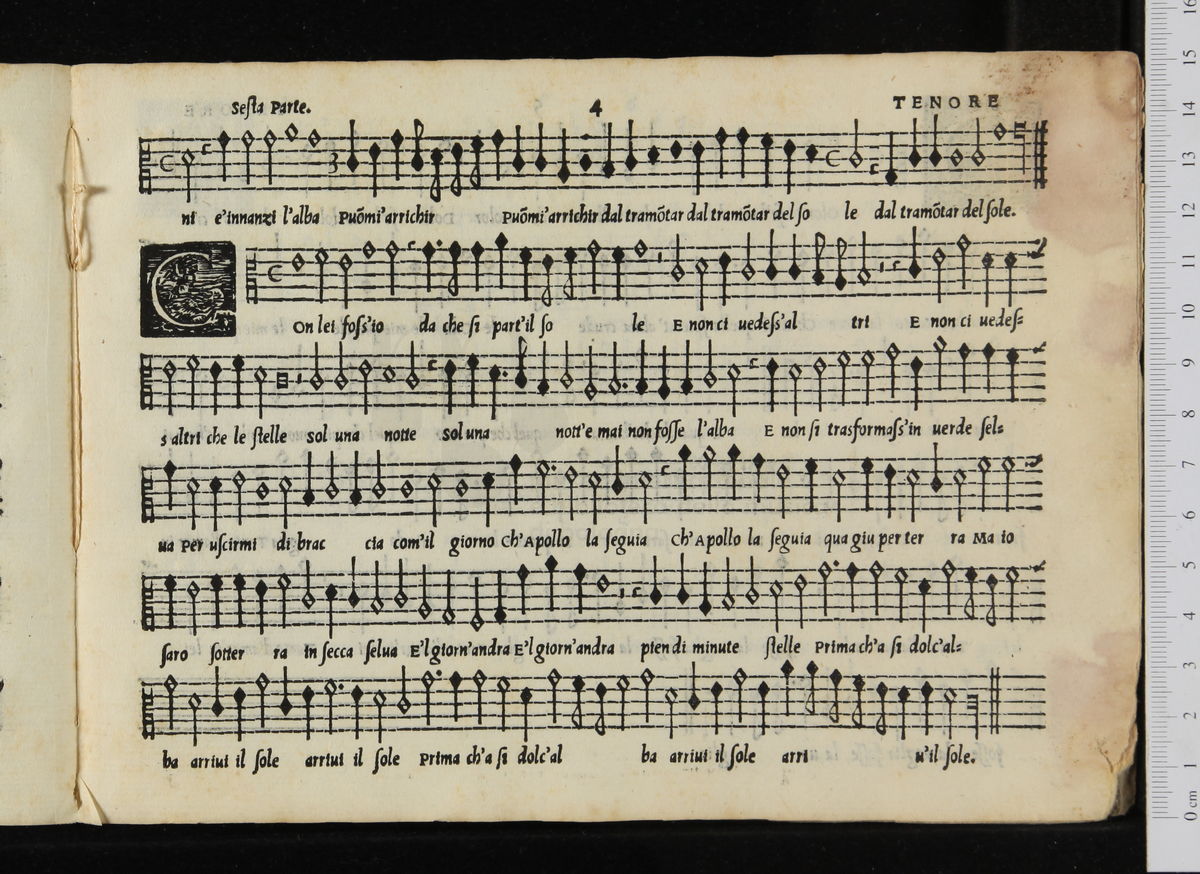 Sesta Parte. 4 TENORE
ni e'innanzi l'alba Puōmi'arrichir Puōmi'arrichir dal tramōtar dal tramōtar del so le dal tramōtar del sole.
C
On lei foss'io da che si part'il so le E non ci uedess'al tri E non ci uedes=
s altri che le stelle sol una notte sol una nott'e mai non fosse l'alba E non si trasformass'in uerde sel=
ua Per uscirmi di brac cia com'il giorno Ch'Apollo la seguia Ch'Apollo la seguia qua giu per ter ra Ma io
saro sotter ra in secca selua E'l giorn'andra E'l giorn'andra pien di minute stelle Prima ch'a si dolc'al=
ba arriui il sole arriui il sole Prima ch'a si dolc'al ba arriui il sole arri u'il sole.
16
15
14
13
12
11
10
9
8
7
6
5
4
3
2
1
0 cm